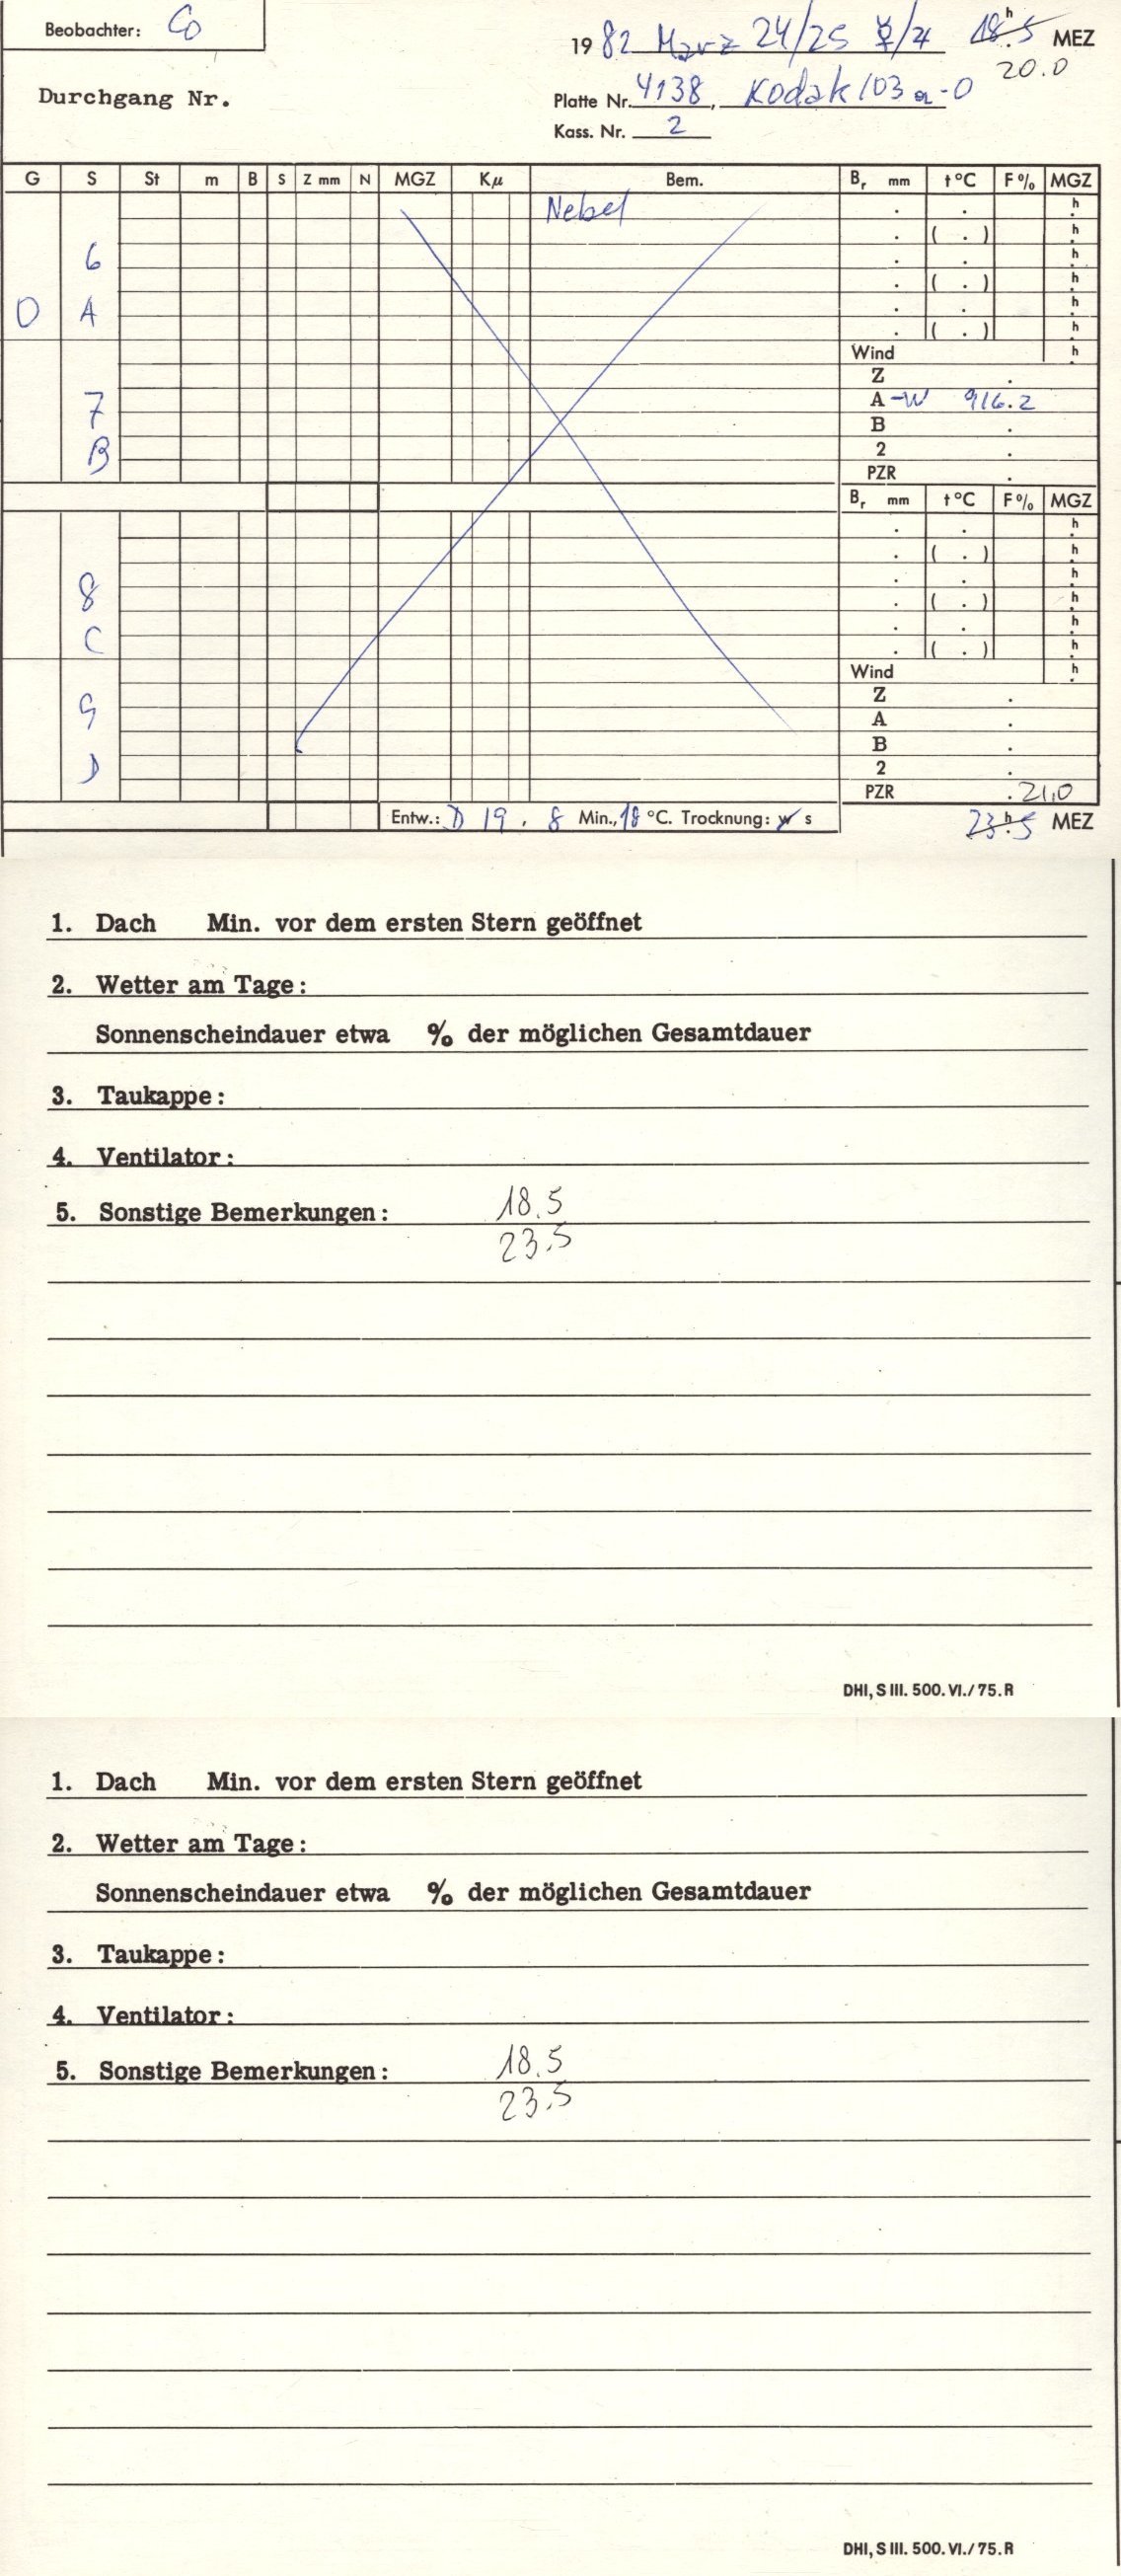 Beobachter: Co
19 82 März 24/25 ☿/♃ 18h.5 MEZ
20.0
Durchgang Nr.
Platte Nr. 4138, Kodak 103 a-O
Kass. Nr. 2
G S St m B S Z mm N MGZ Kμ Bem. Br mm t °C F% MGZ
Nebel . . h
. ( . ) h
6 . . h
. ( . ) h
0 A . . h
. ( . ) h
Wind h
Z .
7 A -W 916.2
B .
B 2 .
PZR .
Br mm t °C F% MGZ
. . h
. ( . ) h
. . h
8 . ( . ) h
C . . h
. ( . ) h
Wind h
9 Z .
A .
B .
D 2 .
PZR . 21,0
Entw.: D 19, 8 Min., 18 °C. Trocknung: w s 23h.5 MEZ
1. Dach Min. vor dem ersten Stern geöffnet
2. Wetter am Tage:
Sonnenscheindauer etwa % der möglichen Gesamtdauer
3. Taukappe:
4. Ventilator:
5. Sonstige Bemerkungen: 18.5
23.5
DHI, S III. 500. VI./75. R
1. Dach Min. vor dem ersten Stern geöffnet
2. Wetter am Tage:
Sonnenscheindauer etwa % der möglichen Gesamtdauer
3. Taukappe:
4. Ventilator:
5. Sonstige Bemerkungen: 18.5
23.5
DHI, S III. 500. VI./75. R